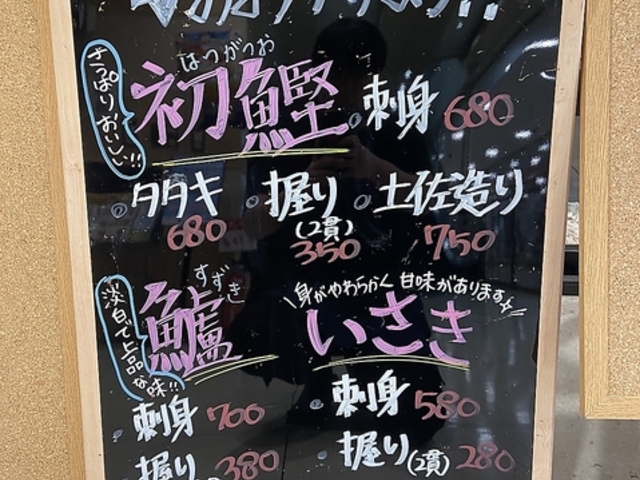 はつがつお
さっぱりおいしい!!
初鰹
・刺身 680
・タタキ 680
・握り(2貫) 350
・土佐造り 750
すずき
淡白で上品な味!!
鱸
刺身 700
握り 380
\身がやわらかく 甘味があります☆/
いさき
・刺身 580
握り(2貫) 280